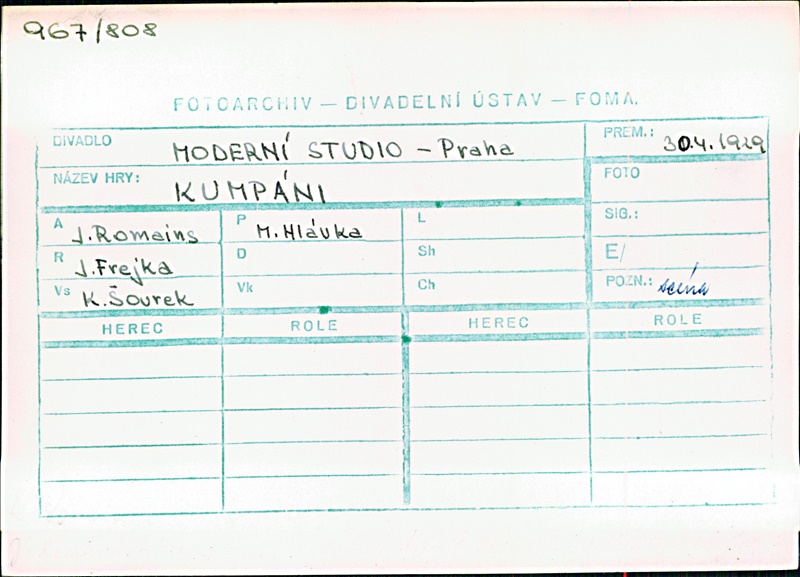 967/808
FOTOARCHIV — DIVADELNÍ ÚSTAV — FOMA.
DIVADLO MODERNÍ STUDIO – Praha
PREM.: 30.4.1929
NÁZEV HRY: KUMPÁNI
FOTO
A J. Romains
P M. Hlávka
L
SIG.:
R J. Frejka
D
Sh
E/
Vs K. Šourek
Vk
Ch
POZN.: scéna
HEREC ROLE HEREC ROLE